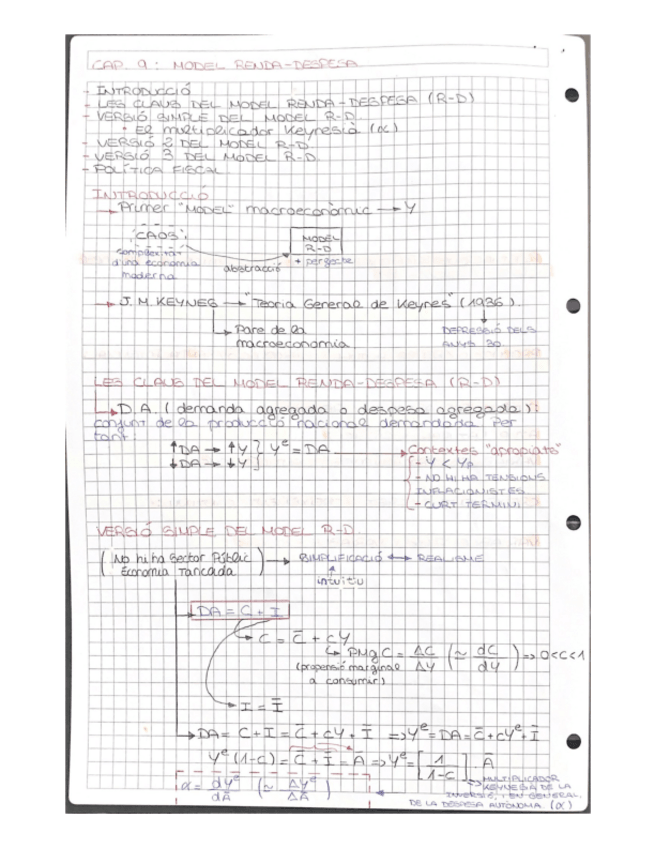 CAP. 9: MODEL RENDA-DESPESA
- INTRODUCCIÓ
- LES CLAUS DEL MODEL RENDA-DESPESA (R-D)
- VERSIÓ SIMPLE DEL MODEL R-D.
• El multiplicador Keynesià (α)
- VERSIÓ 2 DEL MODEL R-D.
- VERSIÓ 3 DEL MODEL R-D.
- POLÍTICA FISCAL
INTRODUCCIÓ
→ Primer "MODEL" macroeconòmic → Y
"CAOS"
MODEL R-D
complexitat d'una economia moderna
abstracció
+ perfecte
→ J. M. KEYNES → "Teoria General de Keynes" (1936).
→ Pare de la macroeconomia
DEPRESSIÓ DELS ANYS 30
LES CLAUS DEL MODEL RENDA-DESPESA (R-D)
→ D.A. (demanda agregada o despesa agregada):
conjunt de la producció nacional demandada. Per
tant:
↑DA → ↑Y } Yᵉ = DA → Contextes "apropiats"
↓DA → ↓Y
- Y < Yp
- NO HI HA TENSIONS
INFLACIONISTES
- CURT TERMINI
VERSIÓ SIMPLE DEL MODEL R-D
(No hi ha Sector Públic
Economia Tancada) → SIMPLIFICACIÓ ↔ REALISME
intuïtiu
DA = C + I
→ C = C̅ + cY
→ PMgC = ΔC/ΔY (≃ dC/dY) ⇒ 0<C<1
(propensió marginal
a consumir)
→ I = I̅
→ DA = C + I = C̅ + cY + I̅ ⇒ Yᵉ = DA = C̅ + cYᵉ + I̅
Yᵉ (1-c) = C̅ + I̅ = A̅ ⇒ Yᵉ = [1/1-c] · A̅
α = dYᵉ/dA̅ (≃ ΔYᵉ/ΔA̅)
→ MULTIPLICADOR
KEYNESIÀ DE LA
INVERSIÓ, I EN GENERAL,
DE LA DESPESA AUTÒNOMA. (α)